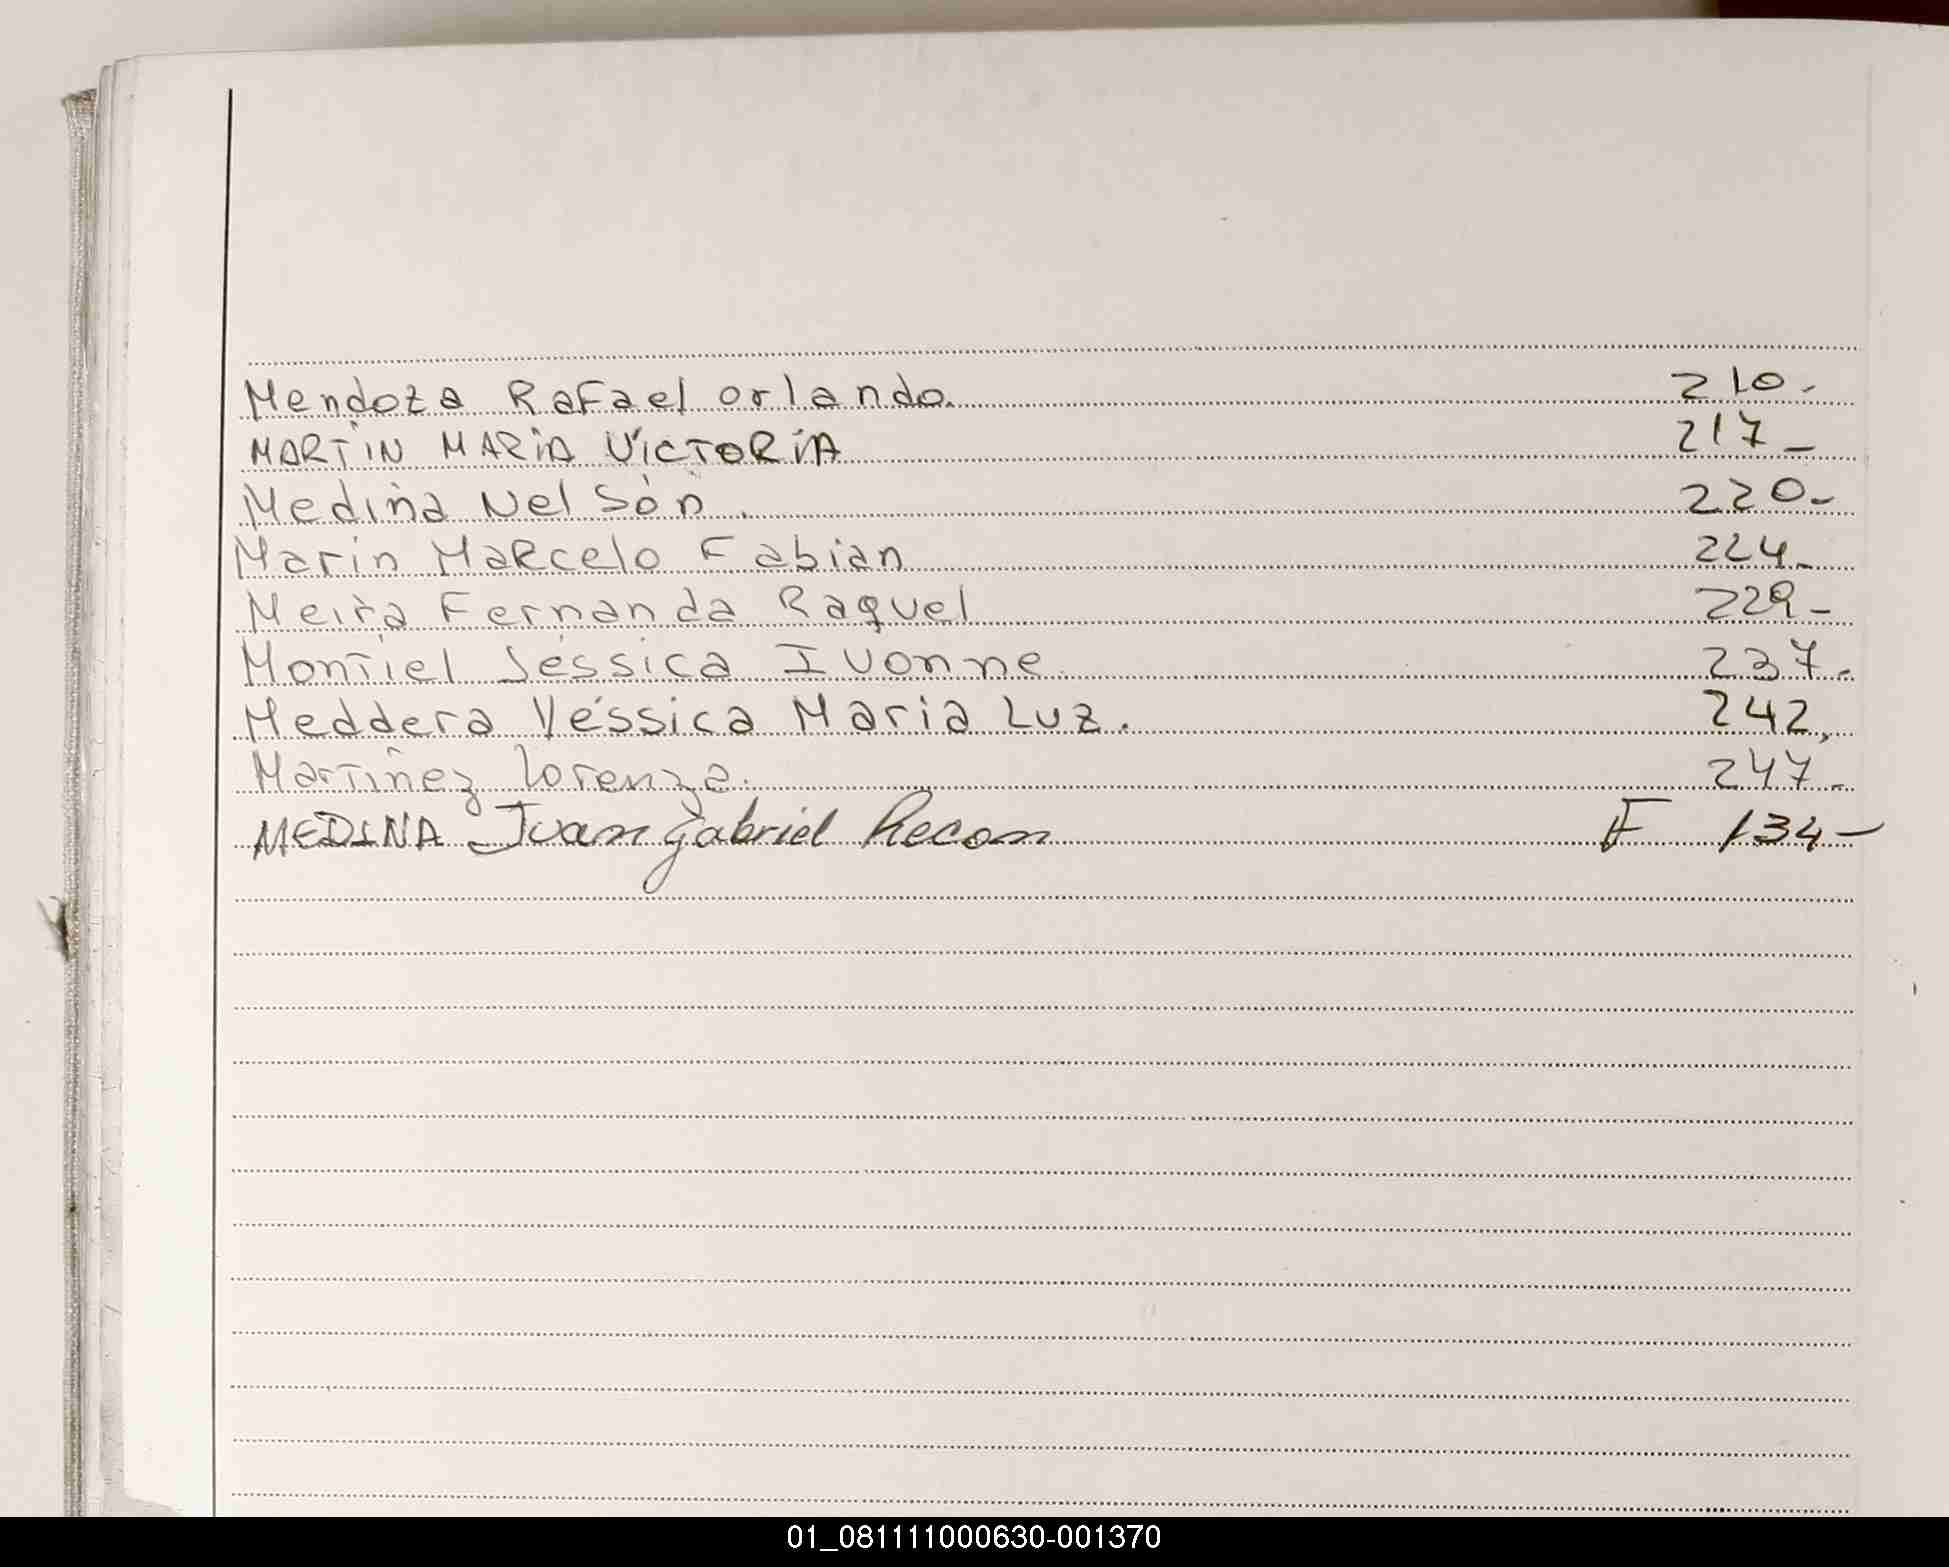 Mendoza Rafael orlando. 210.
MARTIN MARIA VICTORIA 217-
Medina Nelson. 220-
Marin Marcelo Fabian 224-
Meira Fernanda Raquel 229-
Montiel Jéssica Ivonne. 237-
Meddera Yéssica Maria Luz. 242,
Martinez Lorenza. 247-
MEDINA Juan gabriel Recon F 134-
01_081111000630-001370